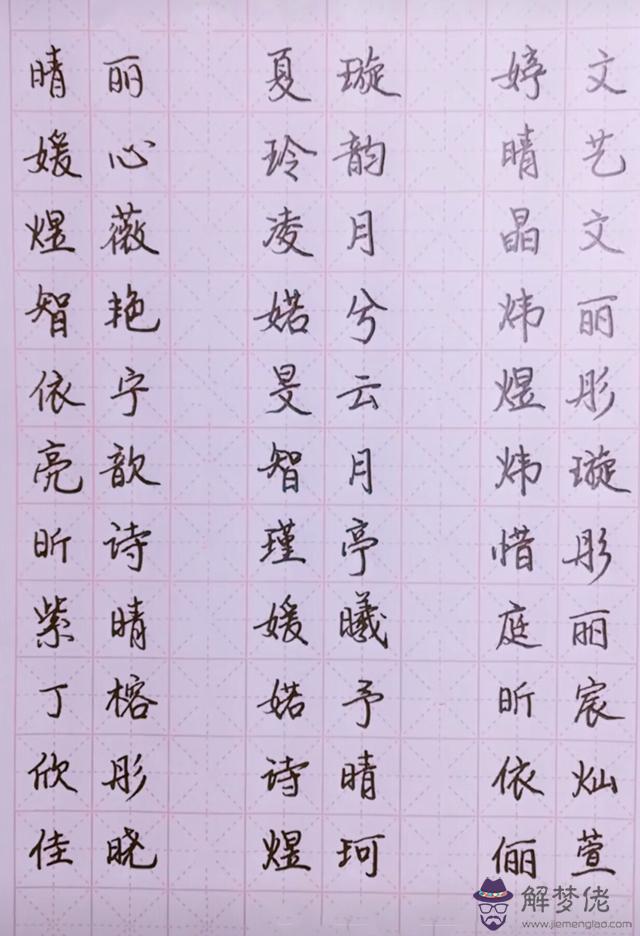 晴丽 夏璇 婷文
媛心 玲韵 晴艺
煜薇 凌月 晶文
智艳 婼兮 炜丽
依宁 旻云 煜彤
亮歆 智月 炜璇
昕诗 瑾亭 惜彤
紫晴 媛曦 庭丽
丁榕 婼予 昕宸
欣彤 诗晴 依灿
佳晓 煜珂 俪萱
解梦佬
www.jiemenglao.com